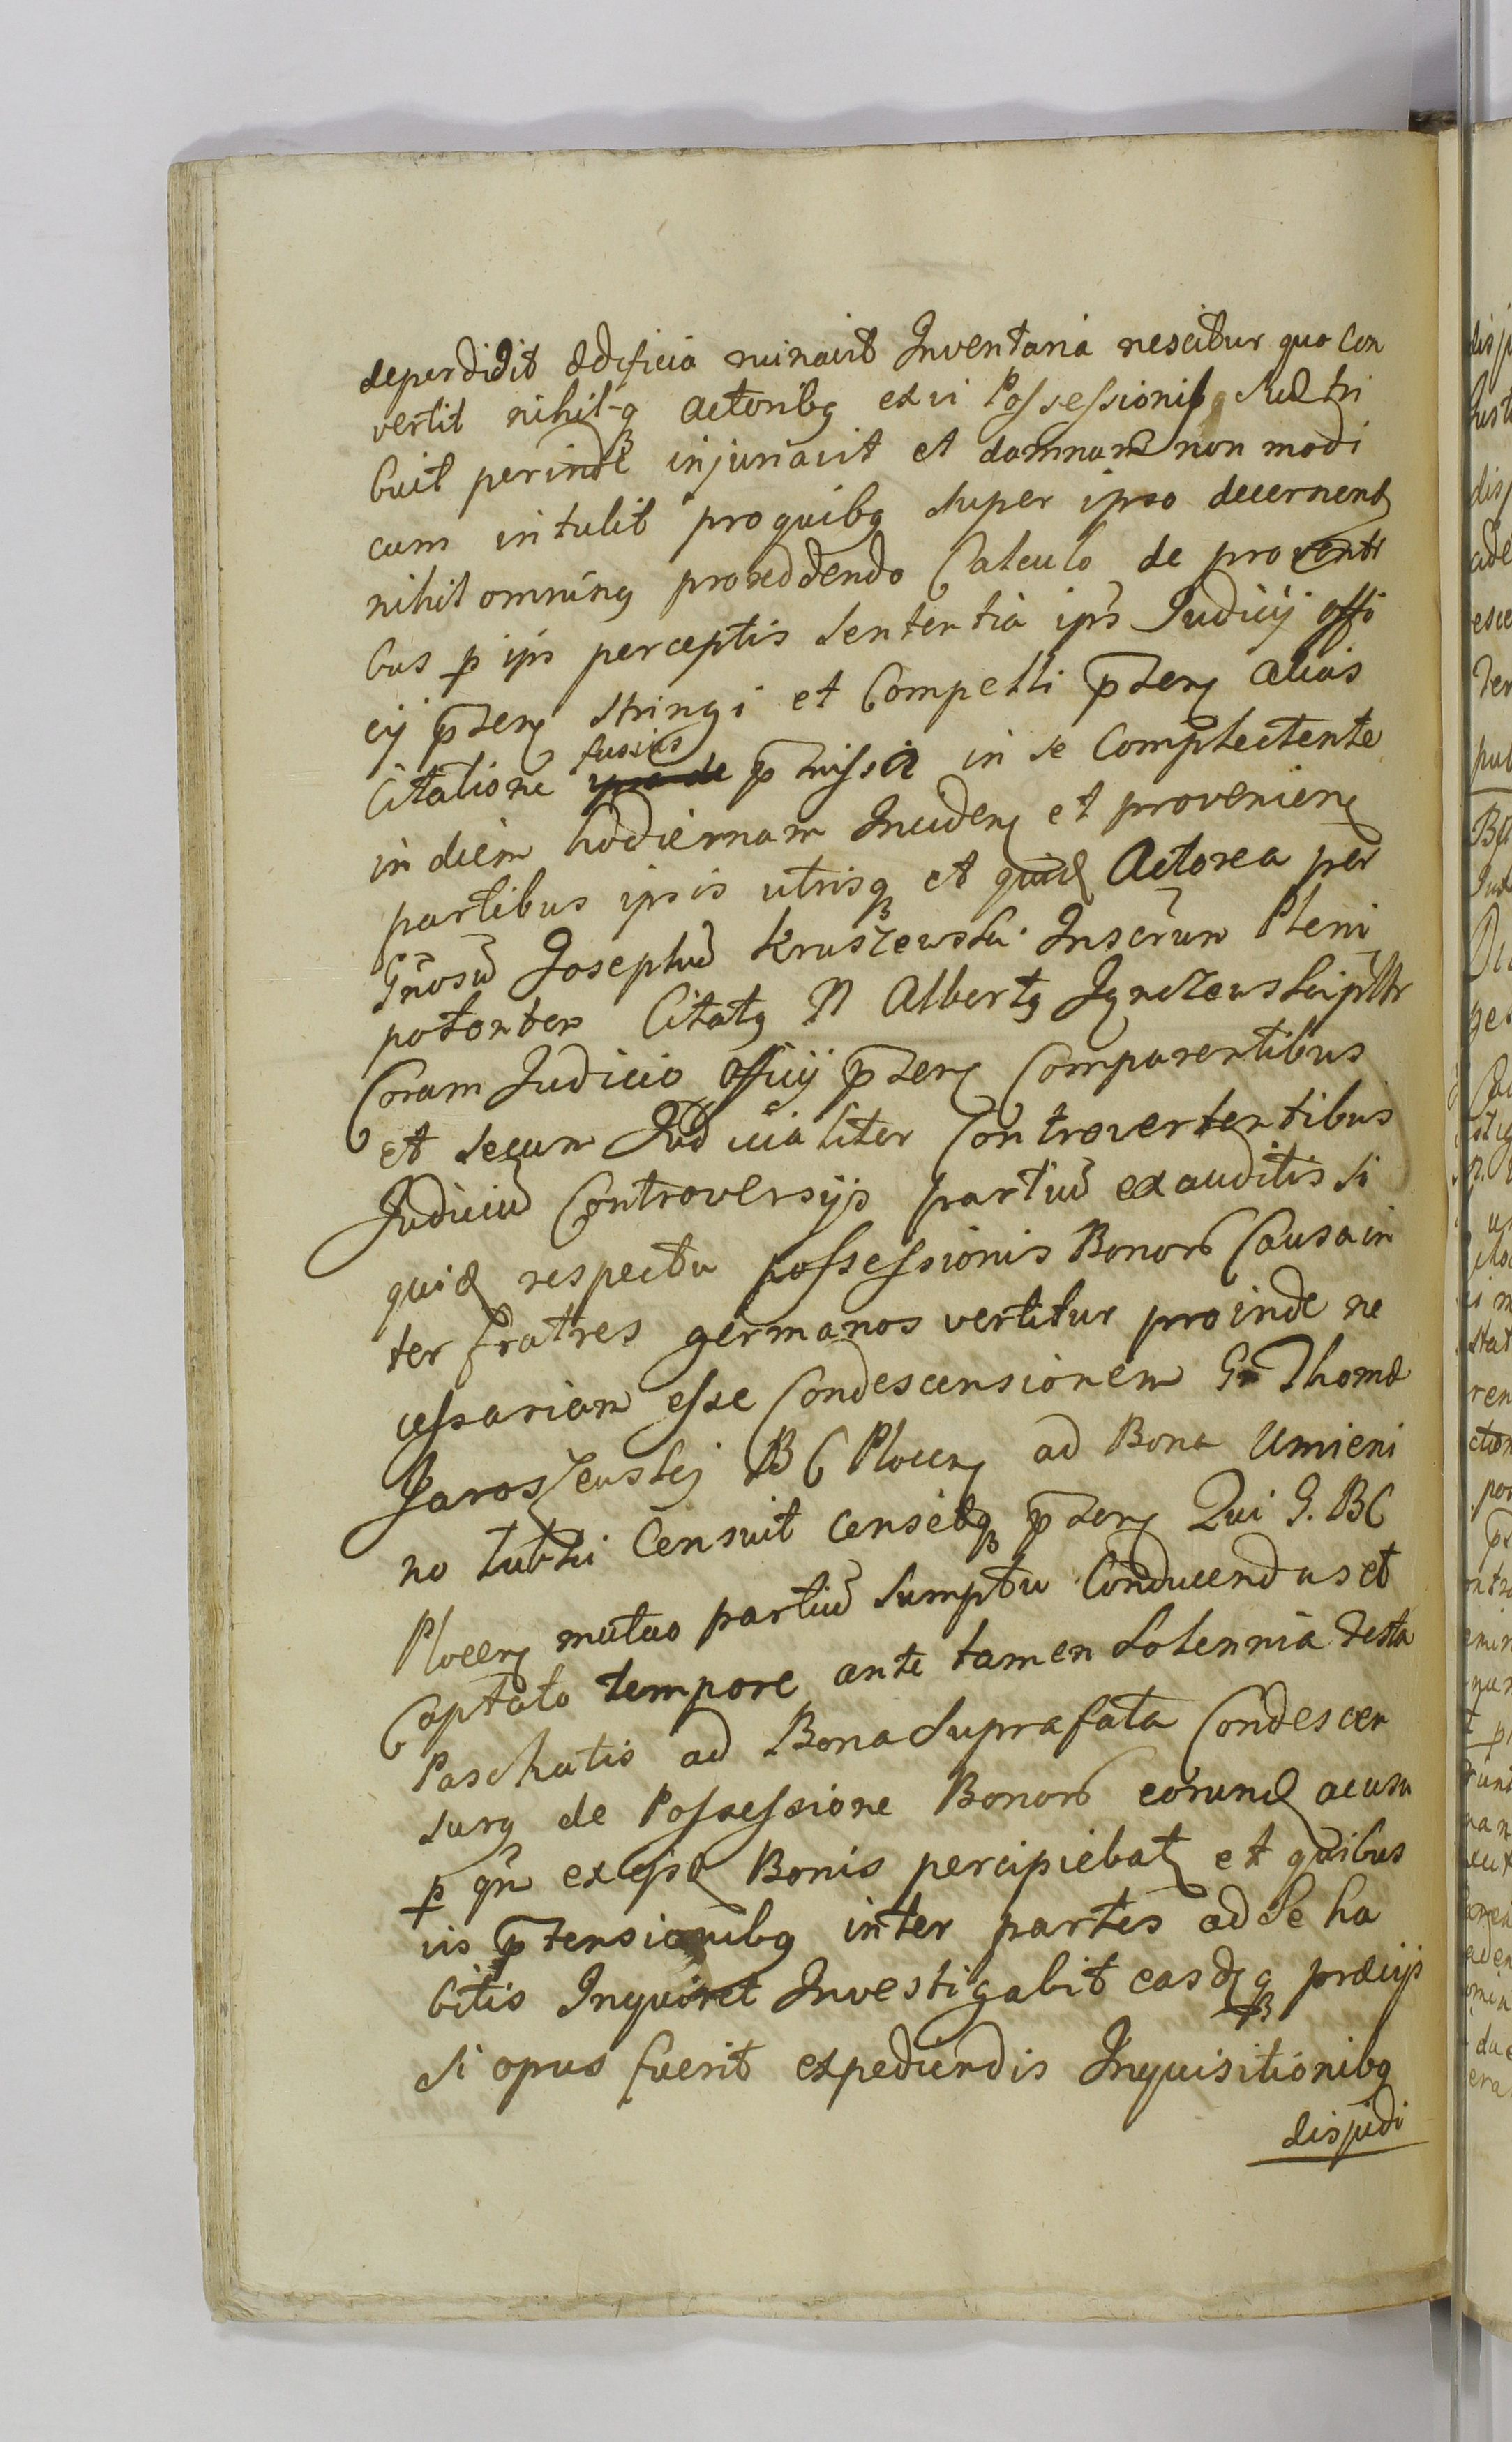 deperdidit ædificia ruinavit Inventaria nescitur quo con
vertit nihil-q actoribq ex vi Possessionis sua tri
buit perinde injuriavit et damnum non modi
cum intulit pro quibq super ipso decernend
nihilominq pro reddendo Calculo de proventi
bus p ips perceptis sententia ips Judicij offi
cij pñzenz stringi et Compelli pñzenz alias
Citatione fusius pmissa in se Complectente
in diem hodiernam Inciden et provenien
partibus ipsis utrisq et quid Actorea per
Gnosũ Josephũ Kruszewski Inscrum Pleni
potenten Citatq N Albertq Ignczewski psltr
Coram Judicio officij pñzenz Comparentibus
et secum Judicialiter Controvertentibus
Judiciũ Controversijs partiũ exauditis si
quid respectu possessionis Bonor Causa in
ter fratres germanos vertitur proinde ne
cessariam esse Condescensionem G Thomæ
Jaroszewskij BG Plocen ad Bona Umieni
no Lubki Censuit censetq pñzenz Qui G. BG
Plocen mutuo partiũ sumptu Conducendus et
Captato tempore ante tamen solennia festa
Paschatis ad Bona suprafata Condescen
surq de Possessione Bonor eorund ac usu
p qm ex ejsd Bonis percipiebat et quibus
vis ptensionibq inter partes ad se ha
bitis Inquiret Investigabit easdq prævijs
si opus fuerit expediendis Inquisitionibq
disjudi